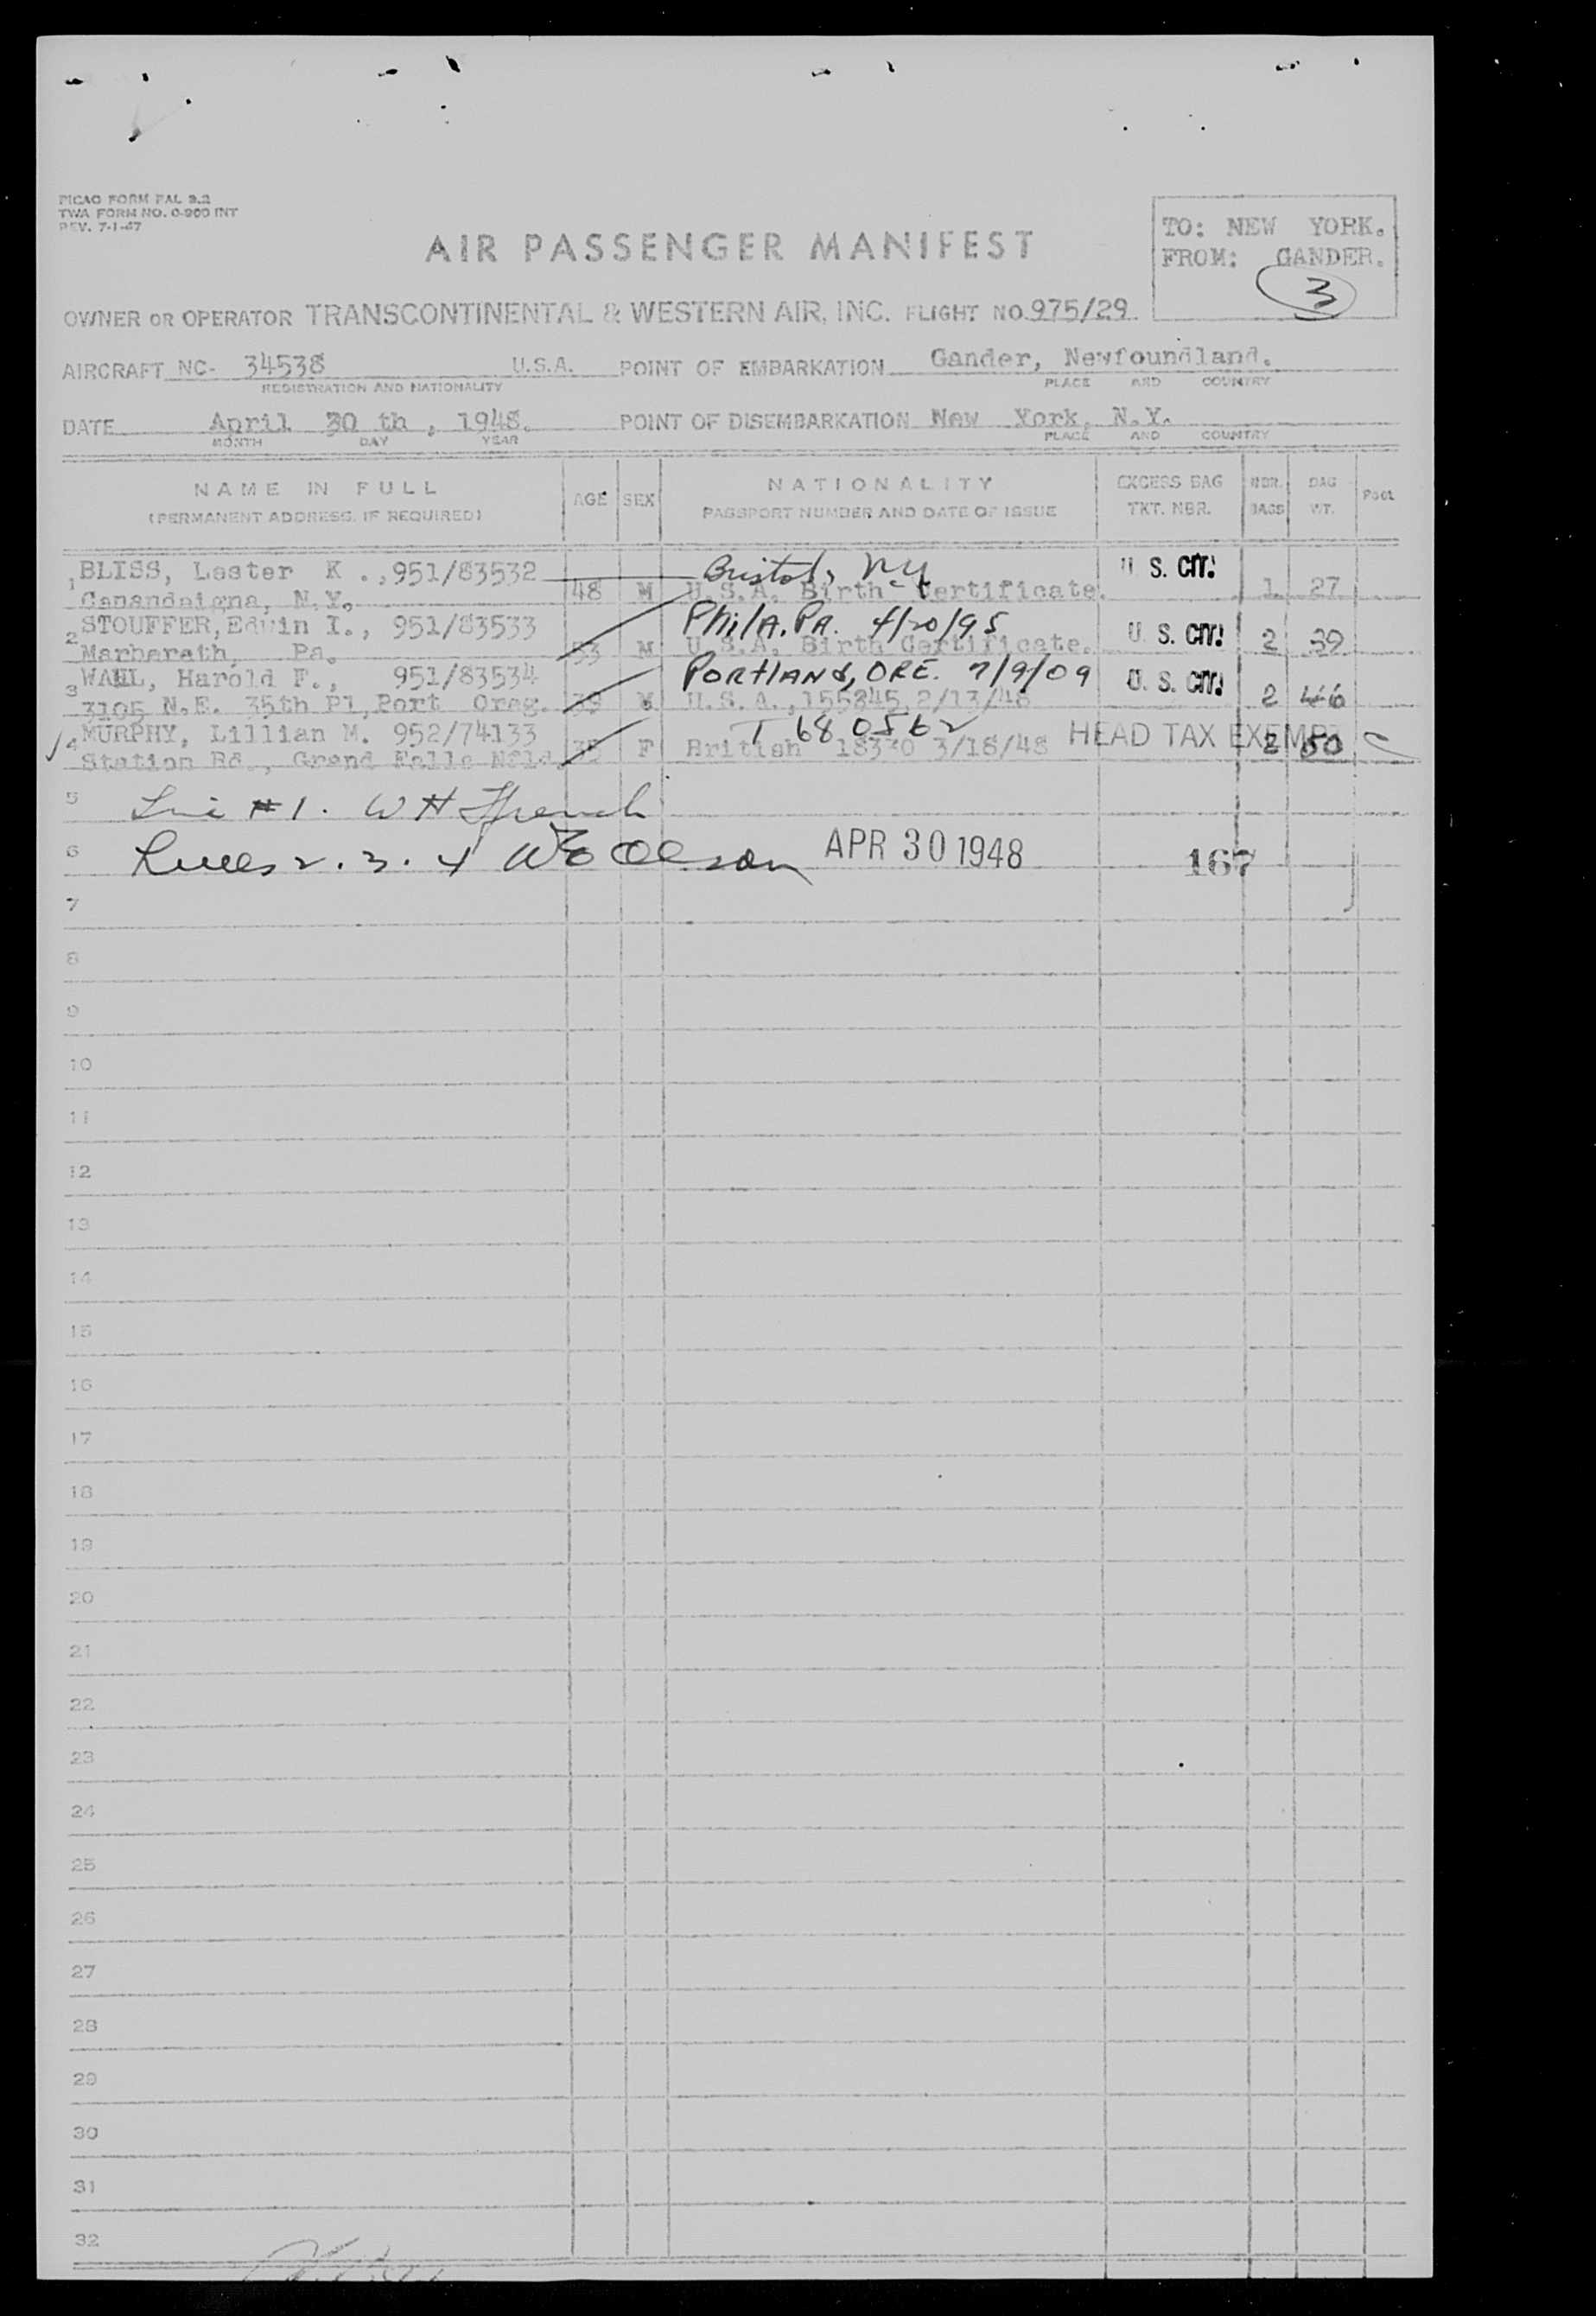 PICAO FORM PAL 2.2
TWA FORM NO. 0-900 INT
REV. 7-1-47
AIR PASSENGER MANIFEST
TO: NEW YORK.
FROM: GANDER.
3
OWNER OR OPERATOR TRANSCONTINENTAL & WESTERN AIR, INC. FLIGHT NO. 975/29
AIRCRAFT NC- 34538 U.S.A. POINT OF EMBARKATION Gander, Newfoundland.
REGISTRATION AND NATIONALITY PLACE AND COUNTRY
DATE April 30 th, 1948. POINT OF DISEMBARKATION New York, N.Y.
MONTH DAY YEAR PLACE AND COUNTRY
NAME IN FULL AGE SEX NATIONALITY EXCESS BAG NBR. BAG Pool
(PERMANENT ADDRESS, IF REQUIRED) PASSPORT NUMBER AND DATE OF ISSUE TKT. NBR. BAGS WT.
1 BLISS, Lester K ., 951/83532 Bristol, NY U. S. CIT.
Canandaigna, N.Y. 48 M U.S.A. Birth Certificate. 1 27
2 STOUFFER, Edwin I., 951/83533 Phila. Pa. 4/20/95 U. S. CIT.
Marberath, Pa. 53 M U.S.A. Birth Certificate. 2 39
3 WAHL, Harold F., 951/83534 PORTLAND, ORE. 7/9/09 U. S. CIT.
3105 N.E. 35th Pl, Port Oreg. 39 M U.S.A., 155345, 2/13/48 2 46
4 MURPHY, Lillian M. 952/74133 T 680562 HEAD TAX EXEMPT
Station Rd., Grand Falls Nfld. 35 F British 18330 3/18/48 2 50
5 Line #1. W H French
6 Lines 2. 3. 4 Olsson APR 30 1948 167
7
8
9
10
11
12
13
14
15
16
17
18
19
20
21
22
23
24
25
26
27
28
29
30
31
32